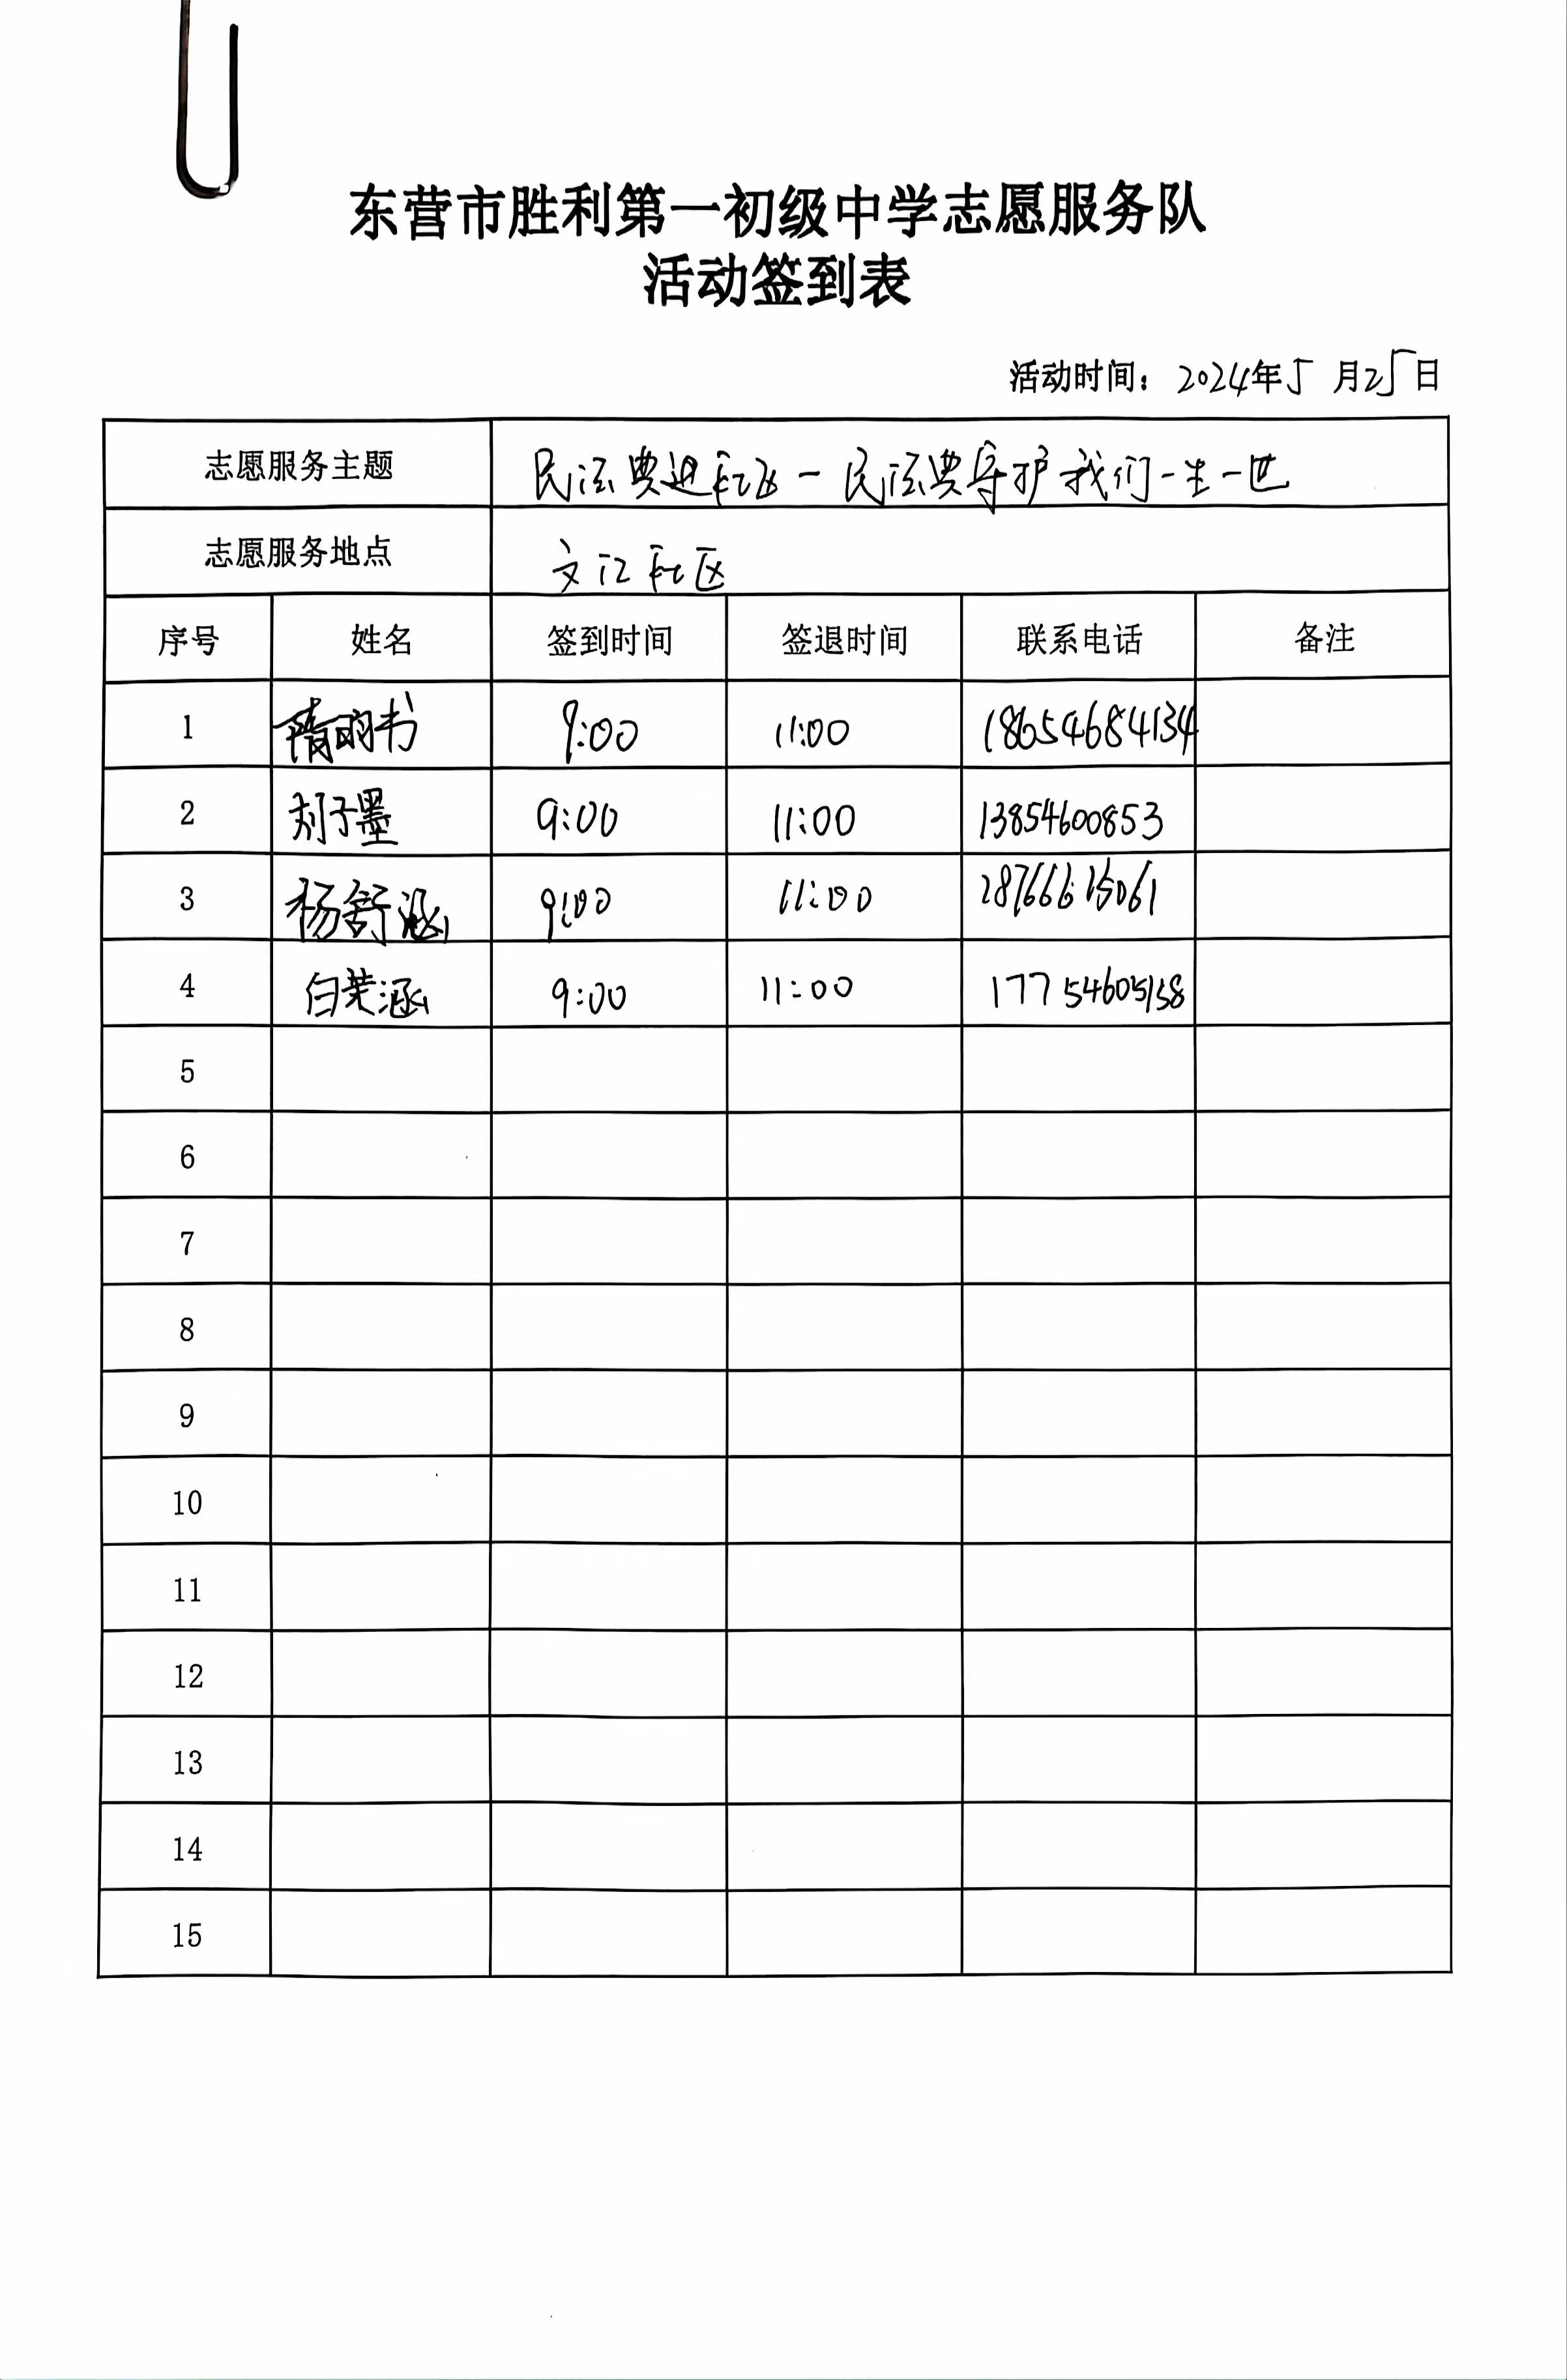 东营市胜利第一初级中学志愿服务队
活动签到表
活动时间：2024年5月25日
志愿服务主题 民法典进社区一民法典守护我们一生一世
志愿服务地点 文汇社区
序号 姓名 签到时间 签退时间 联系电话 备注
1 书 9:00 11:00 18654684134
2 刘子墨 9:00 11:00 13854600853
3 杨舒涵 9:00 11:00
4 白荣涵 9:00 11:00 17754605138
5
6
7
8
9
10
11
12
13
14
15